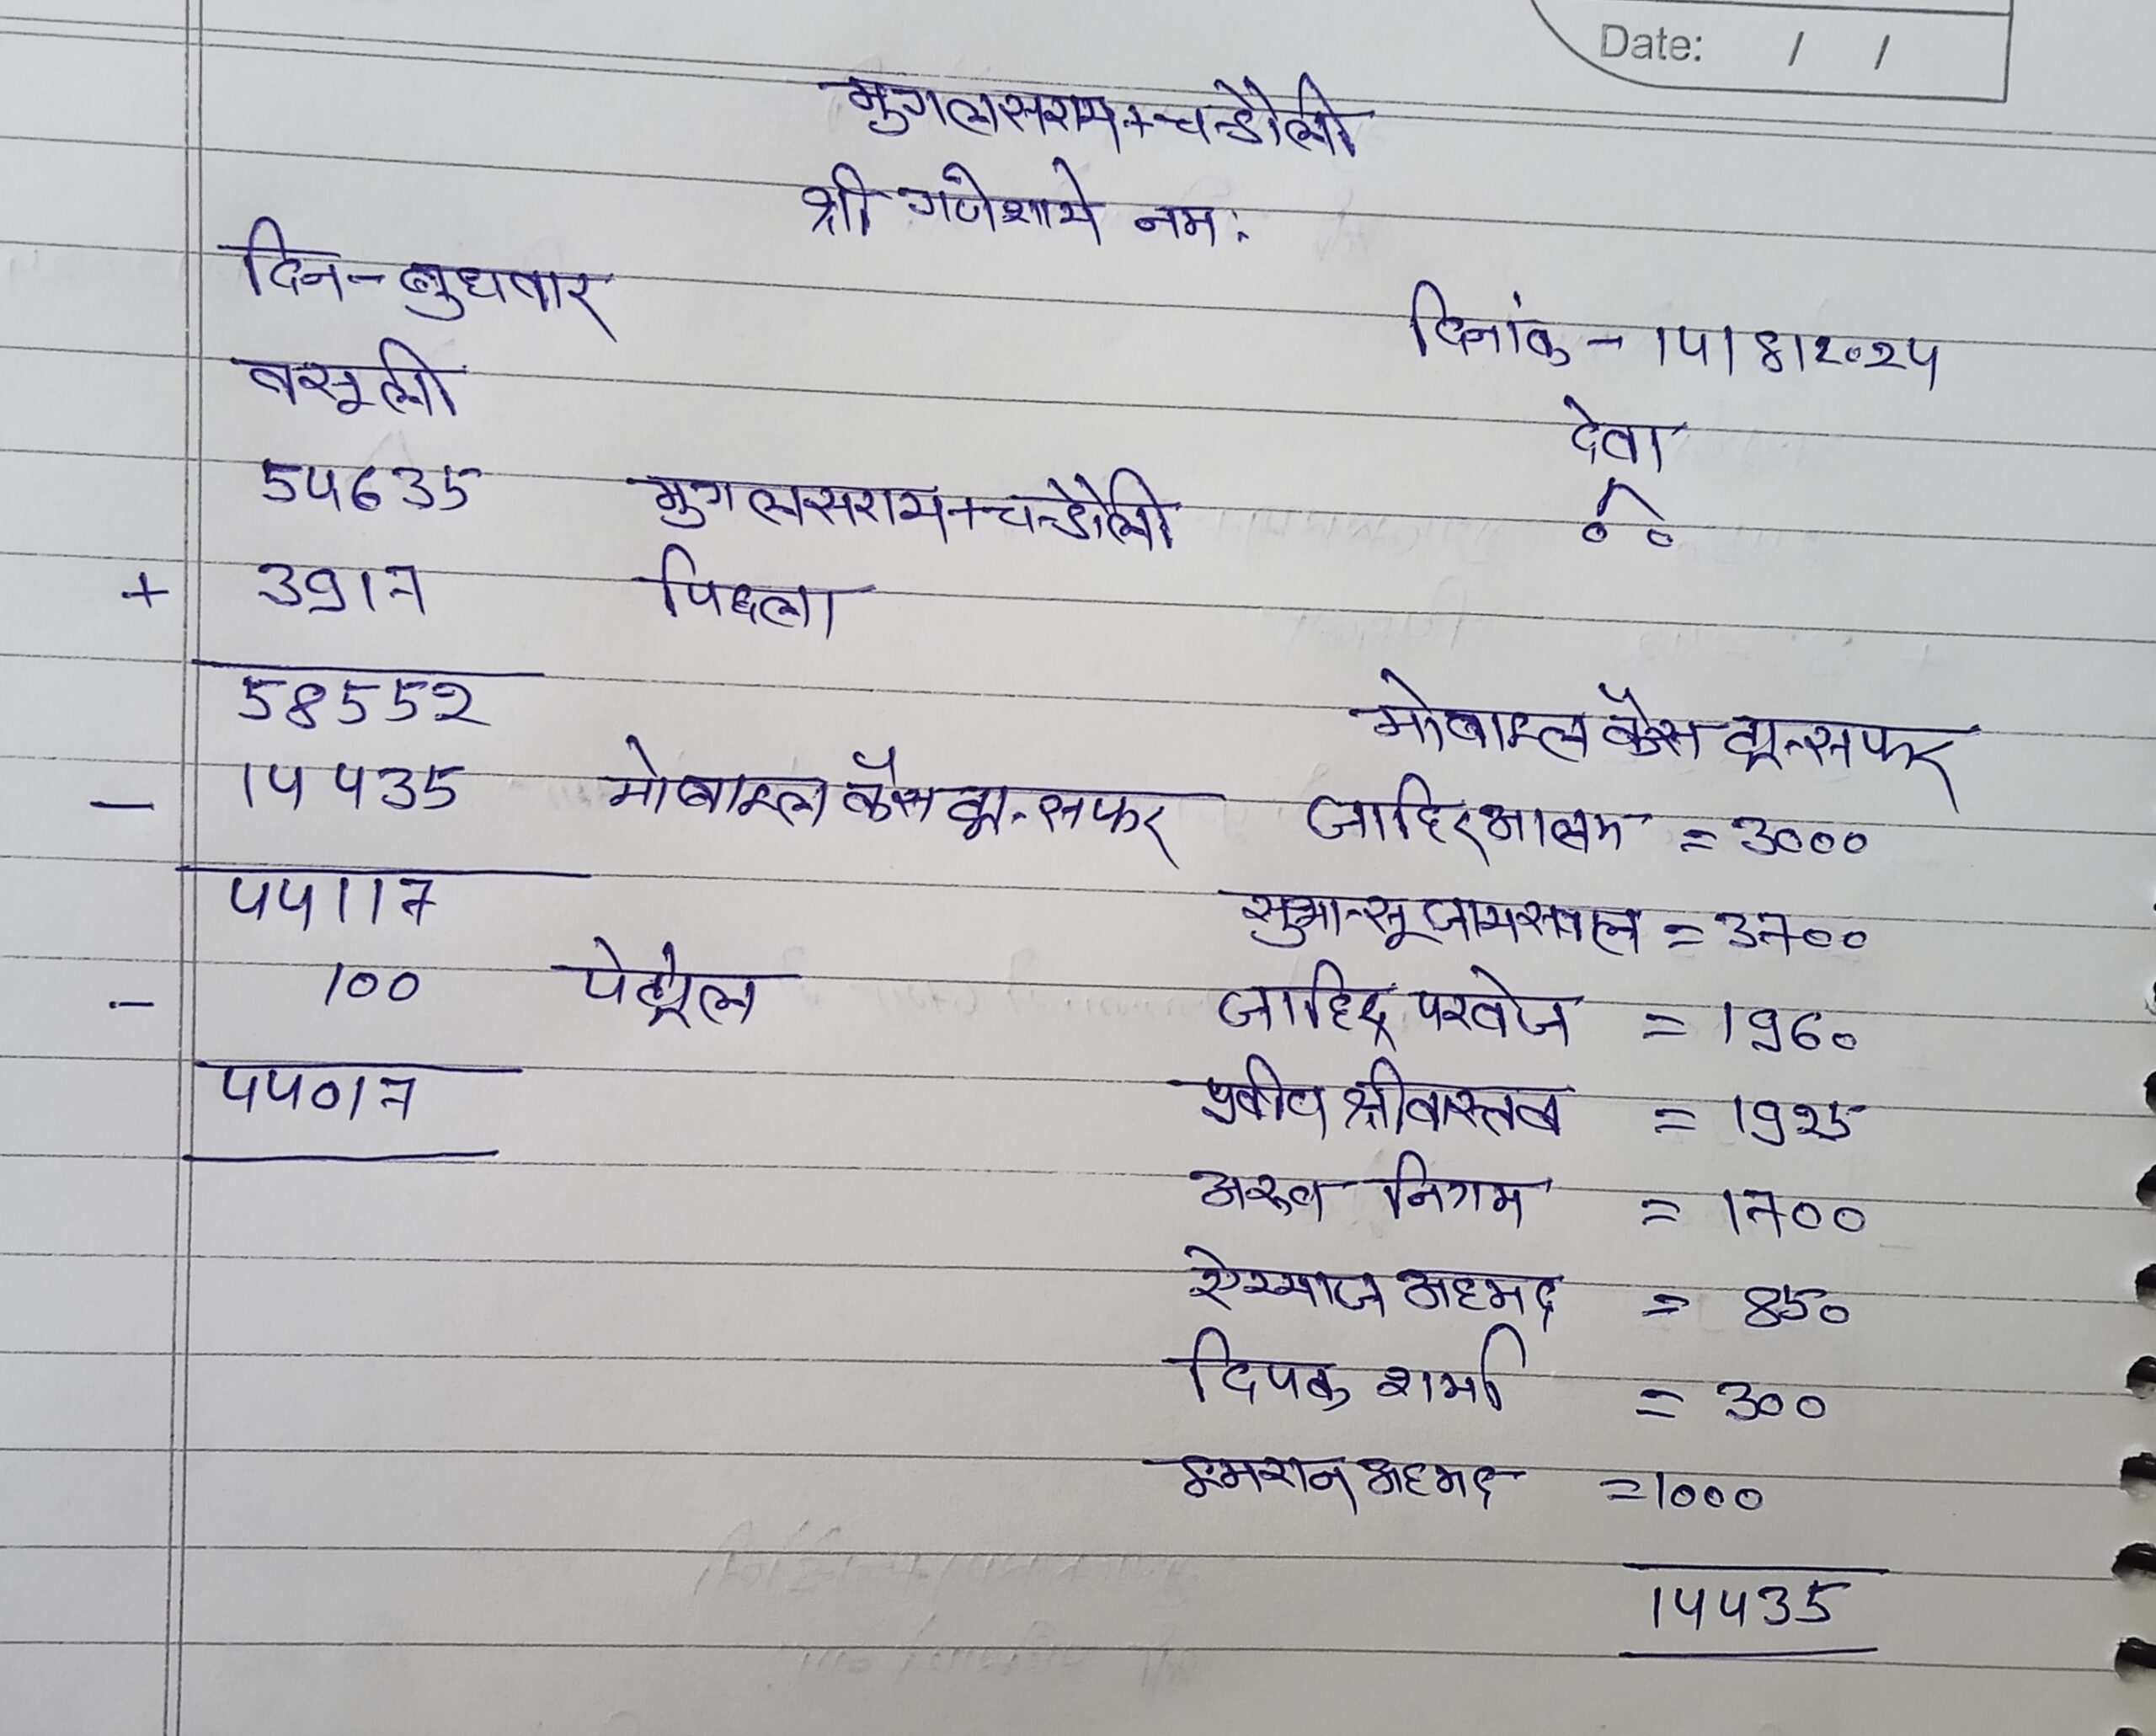 Date: / /
मुगलसराय+चन्डौली
श्री गणेशाये नमः
दिन-बुधवार
दिनांक - 14/8/2024
वसूली
देवा
54635 मुगलसराय+चन्डौली
+ 3917 पिछला
58552
मोबाइल कैस ट्रान्सफर
- 14435 मोबाइल कैस ट्रान्सफर
जाहिर आलम = 3000
44117
सुभान्सू जायसवाल = 3700
- 100 पेट्रोल
जाहिद परवेज = 1960
44017
प्रवीण श्रीवास्तव = 1925
अरुण निगम = 1700
ऐय्याज अहमद = 850
दिपक शर्मा = 300
इमरान अहमद =1000
14435